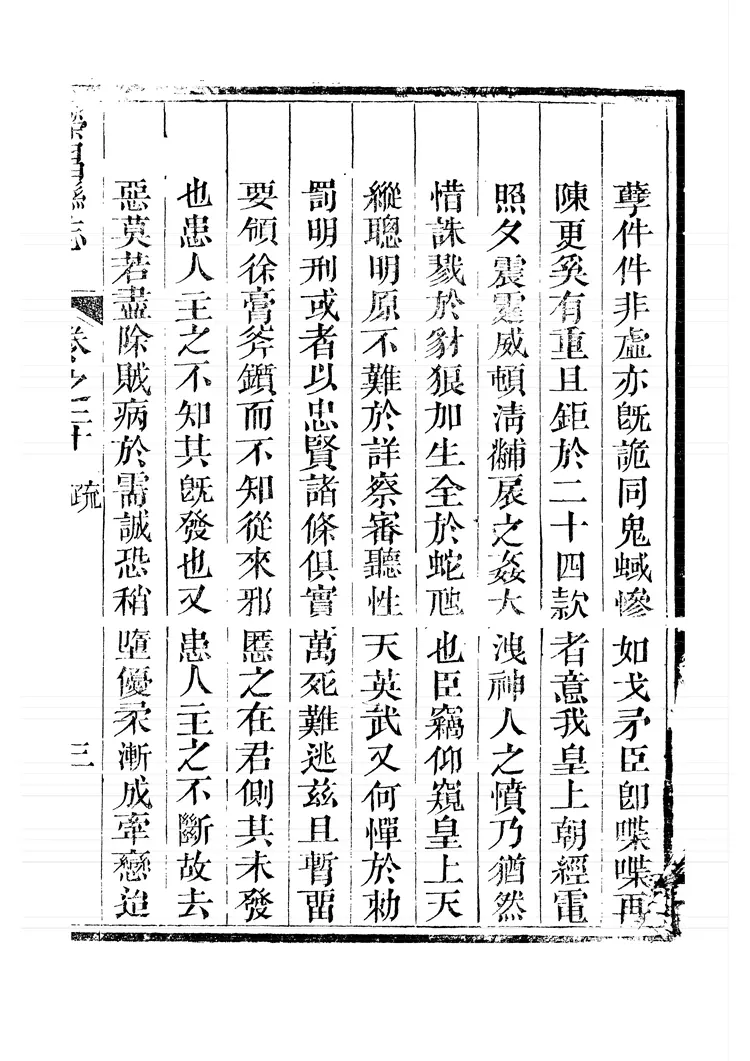 孽件件非虛亦旣詭同鬼蜮慘如戈矛臣卽喋喋再
陳更奚有重且鉅於二十四款者意我皇上朝經電
照夕震霆威頓淸黼扆之姦大洩神人之憤乃猶然
惜誅戮於豺狼加生全於蛇虺也臣竊仰窺皇上天
縱聰明原不難於詳察審聽性天英武又何憚於勅
罰明刑或者以忠賢諸條俱實萬死難逃茲且暫畱
要領徐膏斧鑕而不知從來邪慝之在君側其未發
也患人主之不知其旣發也又患人主之不斷故去
惡莫若盡除賊病於需誠恐稍墮優柔漸成牽戀迨
榮昌縣志 卷之二十 疏 三